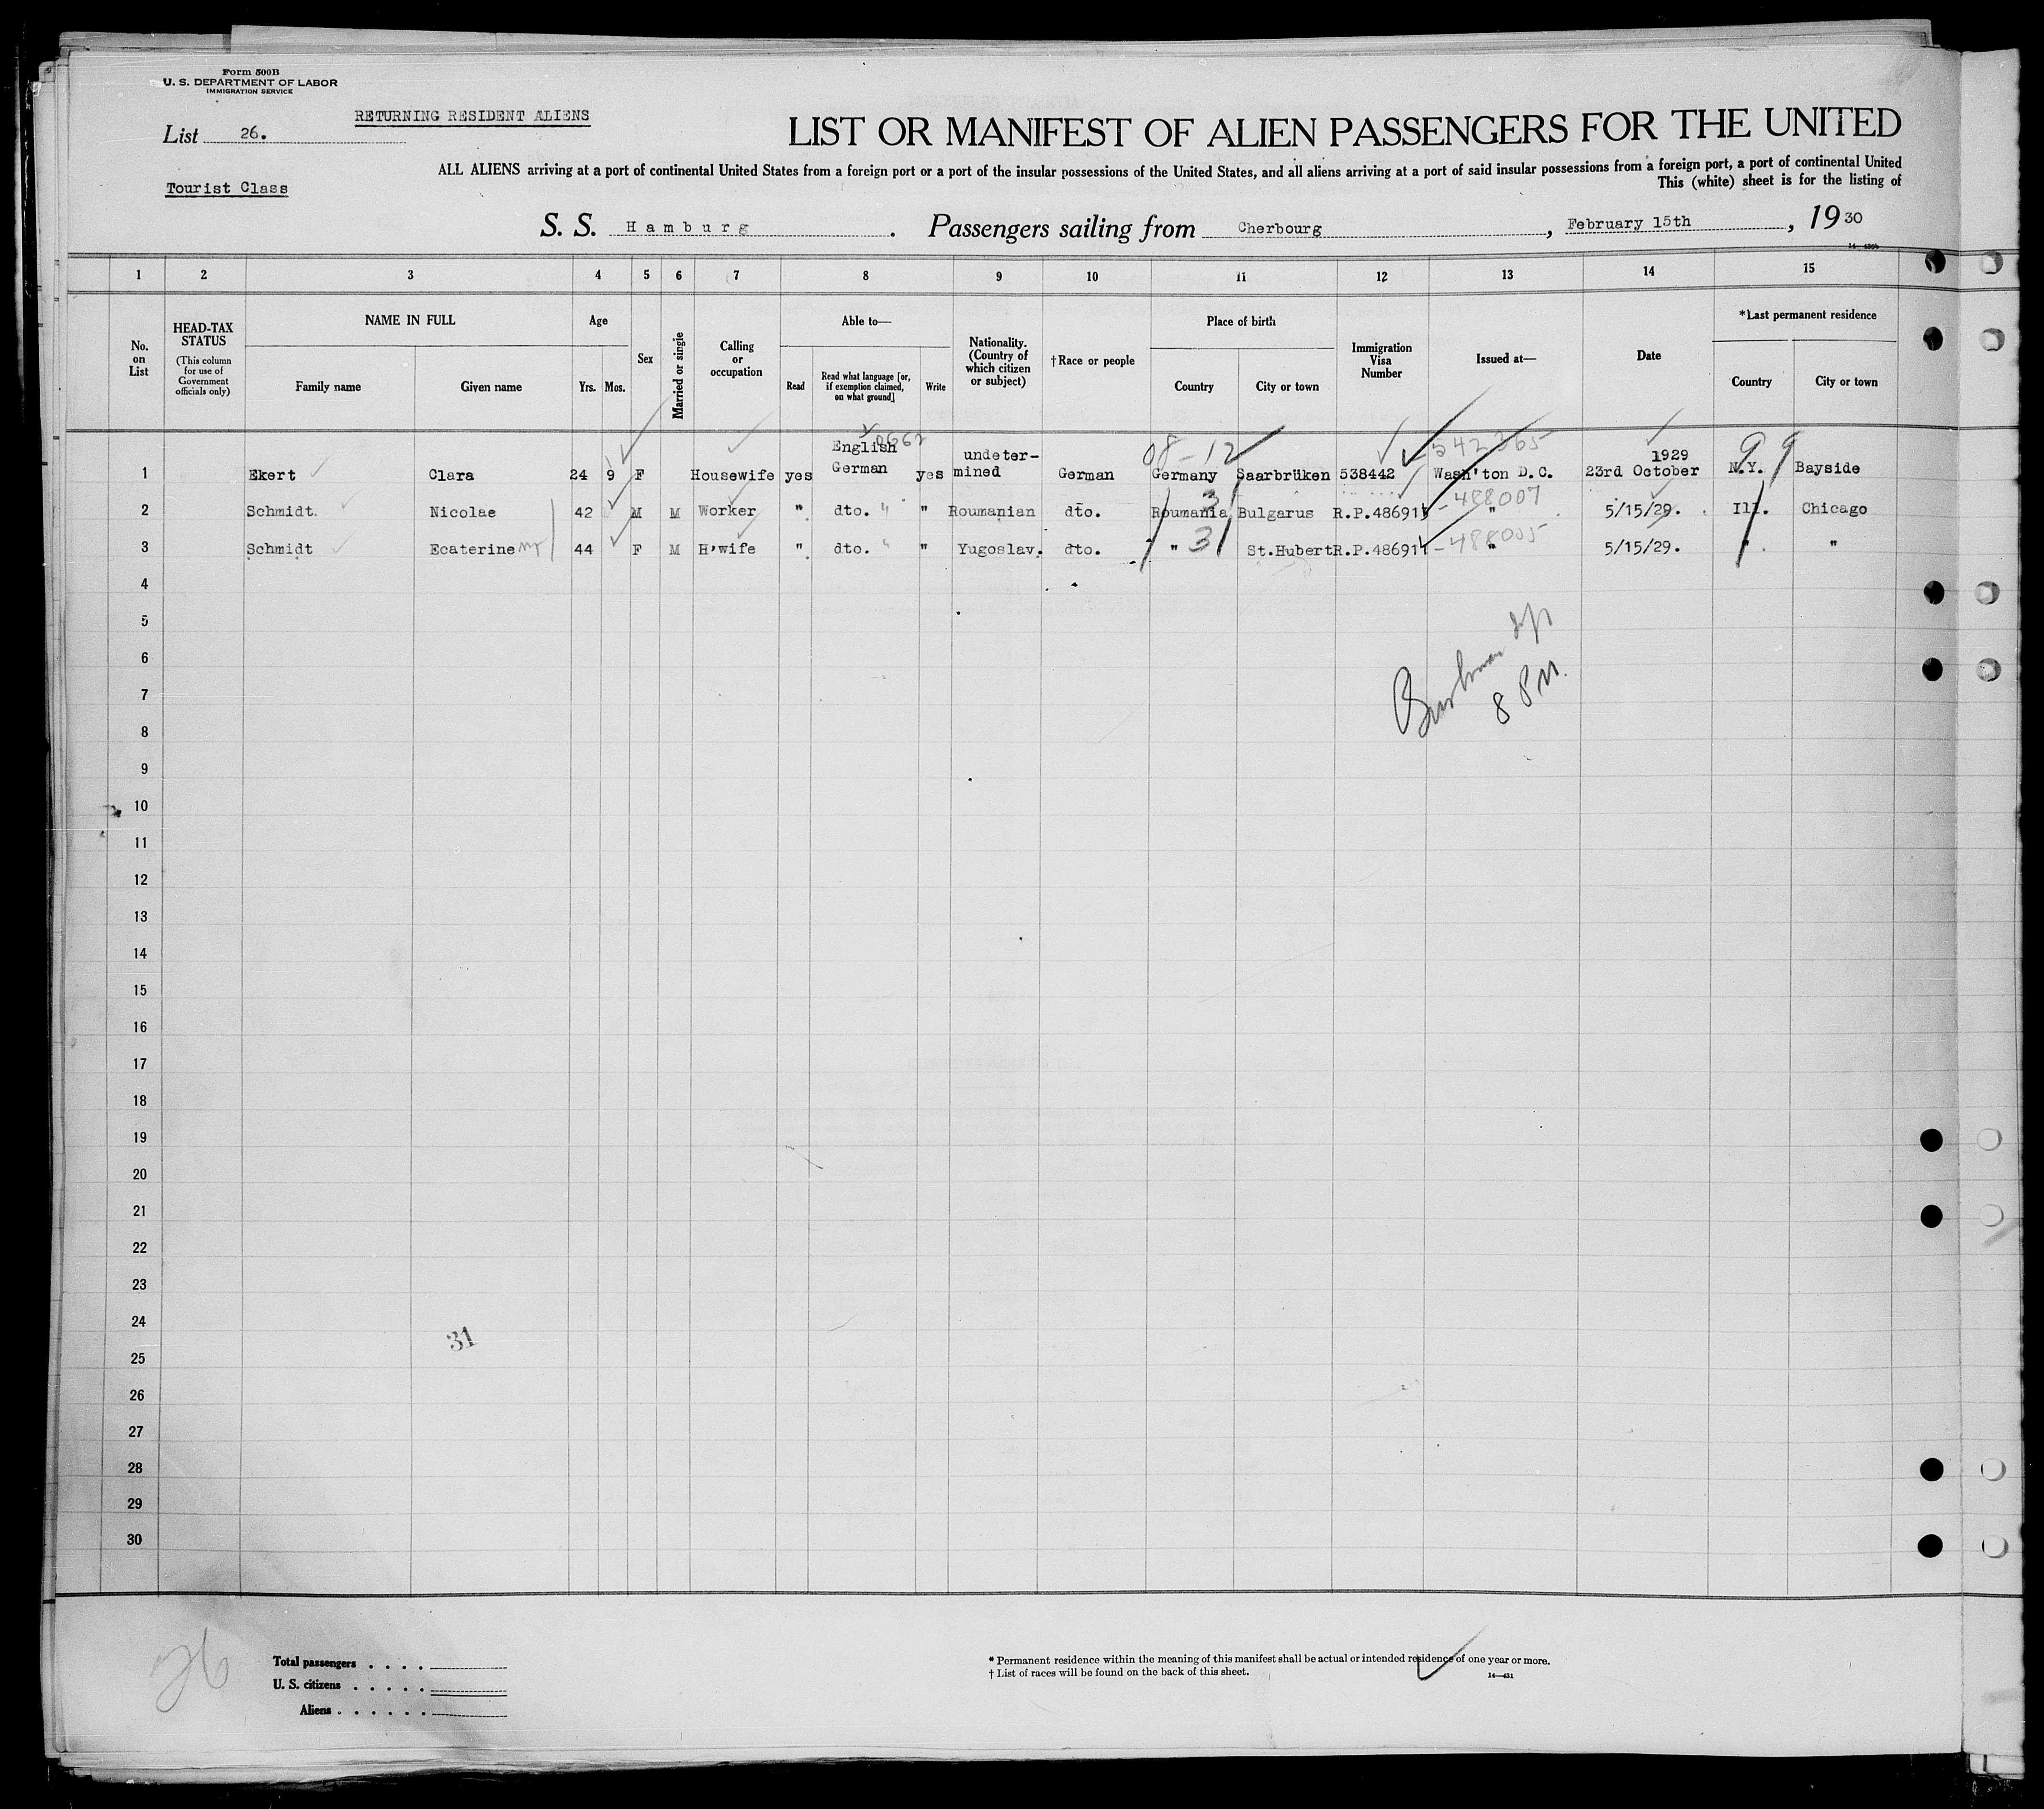 Form 500B
U. S. DEPARTMENT OF LABOR
IMMIGRATION SERVICE
RETURNING RESIDENT ALIENS
List 26.
Tourist Class
LIST OR MANIFEST OF ALIEN PASSENGERS FOR THE UNITED
ALL ALIENS arriving at a port of continental United States from a foreign port or a port of the insular possessions of the United States, and all aliens arriving at a port of said insular possessions from a foreign port, a port of continental United
This (white) sheet is for the listing of
S. S. Hamburg . Passengers sailing from Cherbourg , February 15th , 19 30
1 2 3 4 5 6 7 8 9 10 11 12 13 14 15
No. on List
HEAD-TAX STATUS
(This column for use of Government officials only)
NAME IN FULL
Family name Given name
Age
Yrs. Mos.
Sex
Married or single
Calling or occupation
Able to—
Read
Read what language [or, if exemption claimed, on what ground]
Write
Nationality. (Country of which citizen or subject)
†Race or people
Place of birth
Country City or town
Immigration Visa Number
Issued at—
Date
*Last permanent residence
Country City or town
08-12 542365 99
1 Ekert Clara 24 9 F Housewife yes English German yes undeter-mined German Germany Saarbrüken 538442 Wash'ton D.C. 23rd October 1929 N.Y. Bayside
2 Schmidt. Nicolae 42 M M Worker " dto. " " Roumanian dto. Roumania 31 Bulgarus R.P. 488007 " 5/15/29. Ill. Chicago
3 Schmidt Ecaterine 44 F M H'wife " dto. " " Yugoslav. dto. " 31 St.Hubert R.P. 488005 " 5/15/29. " "
4
5
6
7
8 P.M.
8
9
10
11
12
13
14
15
16
17
18
19
20
21
22
23
24
31
25
26
27
28
29
30
26
Total passengers
U. S. citizens
Aliens
* Permanent residence within the meaning of this manifest shall be actual or intended residence of one year or more.
† List of races will be found on the back of this sheet.
14—431